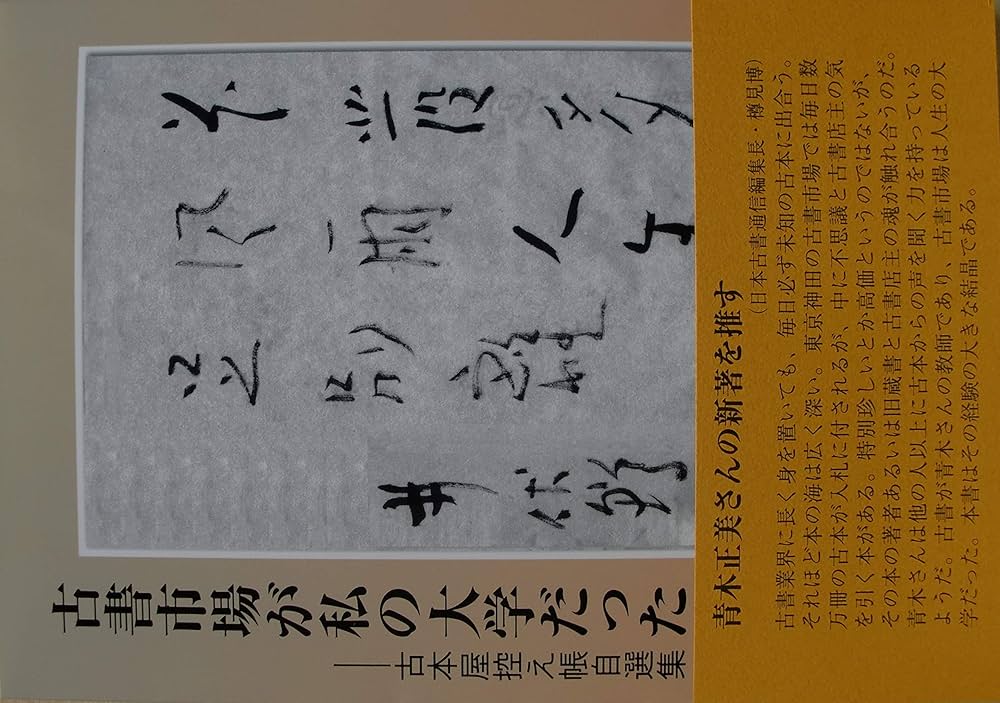 古書市場が私の大学だった
——古本屋控え帳自選集
青木正美さんの新著を推す
(日本古書通信編集長・樽見博)
古書業界に長く身を置いても、毎日必ず未知の古本に出合う。
それほど本の海は広く深い。東京神田の古書市場では毎日数
万冊の古本が入札に付されるが、中に不思議と古書店主の気
を引く本がある。特別珍しいとか高価というのではないが、
その本の著者あるいは旧蔵書と古書店主の魂が触れ合うのだ。
青木さんは他の人以上に古本からの声を聞く力を持っている
ようだ。古書が青木さんの教師であり、古書市場は人生の大
学だった。本書はその経験の大きな結晶である。